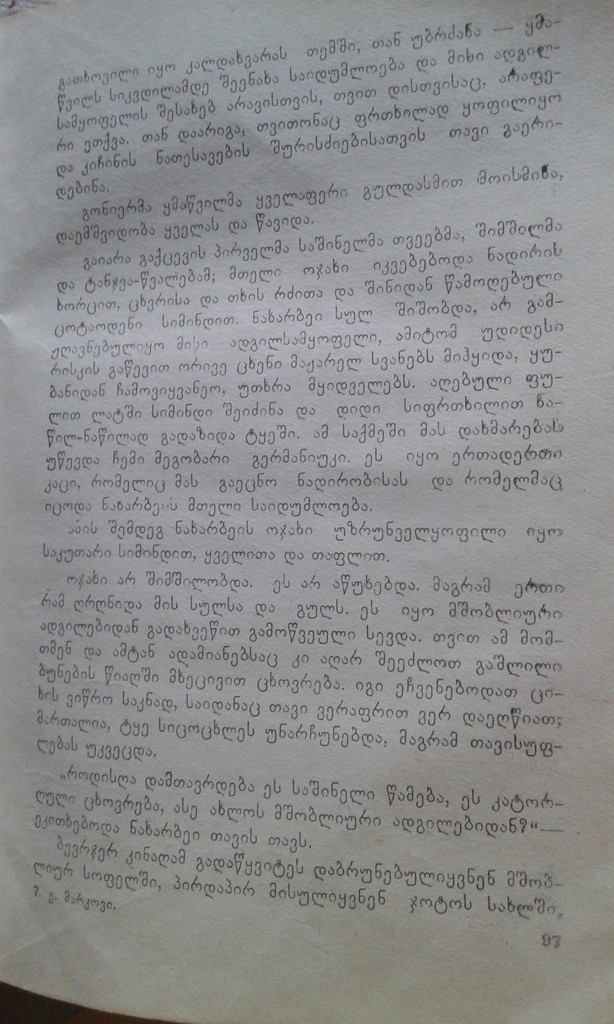 გათხოვილი იყო კალდახვარას თემში, თან უბრძანა — ყმა-
წვილს სიკვდილამდე შეენახა საიდუმლოება და მიხი ადგილ-
სამყოფელის შესახებ არავისთვის, თვით დისთვისაც, არაფე-
რი ეთქვა. თან დაარიგა, თვითონაც ფრთხილად ყოფილიყო
და კიჩინის ნათესავების შურისძიებისათვის თავი გაერი-
დებინა.
გონიერმა ყმაწვილმა ყველაფერი გულდასმით მოისმინა,
დაემშვიდობა ყველას და წავიდა.
გაიარა გაქცევის პირველმა საშინელმა თვეებმა, შიმშილმა
და ტანჯვა-წვალებამ; მთელი ოჯახი იკვებებოდა ნადირის
ხორცით, ცხვრისა და თხის რძითა და შინიდან წამოღებული
ცოტაოდენი სიმინდით. ნახარბეი სულ შიშობდა, არ გამ-
ჟღავნებულიყო მისი ადგილსამყოფელი, ამიტომ უდიდესი
რისკის გაწევით ორივე ცხენი მაჟარელ სვანებს მიჰყიდა, ყუ-
ბანიდან ჩამოვიყვანეო, უთხრა მყიდველებს. აღებული ფუ-
ლით ლატში სიმინდი შეიძინა და დიდი სიფრთხილით ნა-
წილ-ნაწილად გადაზიდა ტყეში. ამ საქმეში მას დახმარებას
უწევდა ჩემი მეგობარი გერმანიუკი. ეს იყო ერთადერთი
კაცი, რომელიც მას გაეცნო ნადირობისას და რომელმაც
იცოდა ნახარბეის მთელი საიდუმლოება.
ამის შემდეგ ნახარბეის ოჯახი უზრუნველყოფილი იყო
საკუთარი სიმინდით, ყველითა და თაფლით.
ოჯახი არ შიმშილობდა. ეს არ აწუხებდა. მაგრამ ერთი
რამ ღრღნიდა მის სულსა და გულს. ეს იყო მშობლიური
ადგილებიდან გადახვეწით გამოწვეული სევდა. თვით ამ მომ-
თმენ და ამტან ადამიანებსაც კი აღარ შეეძლოთ გაშლილი
ბუნების წიაღში მხეცივით ცხოვრება. იგი ეჩვენებოდათ ცი-
ხის ვიწრო საკნად, საიდანაც თავი ვერაფრით ვერ დაეღწიათ;
მართალია, ტყე სიცოცხლეს უნარჩუნებდა, მაგრამ თავისუფ-
ლებას უკვეცდა.
„როდისღა დამთავრდება ეს საშინელი წამება, ეს კატორ-
ღული ცხოვრება, ასე ახლოს მშობლიური ადგილებიდან?“ —
ეკითხებოდა ნახარბეი თავის თავს.
ბევრჯერ კინაღამ გადაწყვიტეს დაბრუნებულიყვნენ მშობ-
ლიურ სოფელში, პირდაპირ მისულიყვნენ ჯოტოს სახლში,
7. ე. მარკოვი.
97